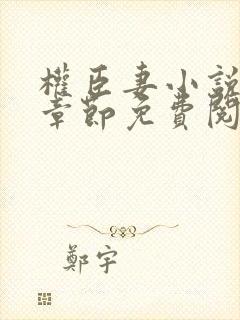 權臣妻小說
章節免費閱
鄭宇